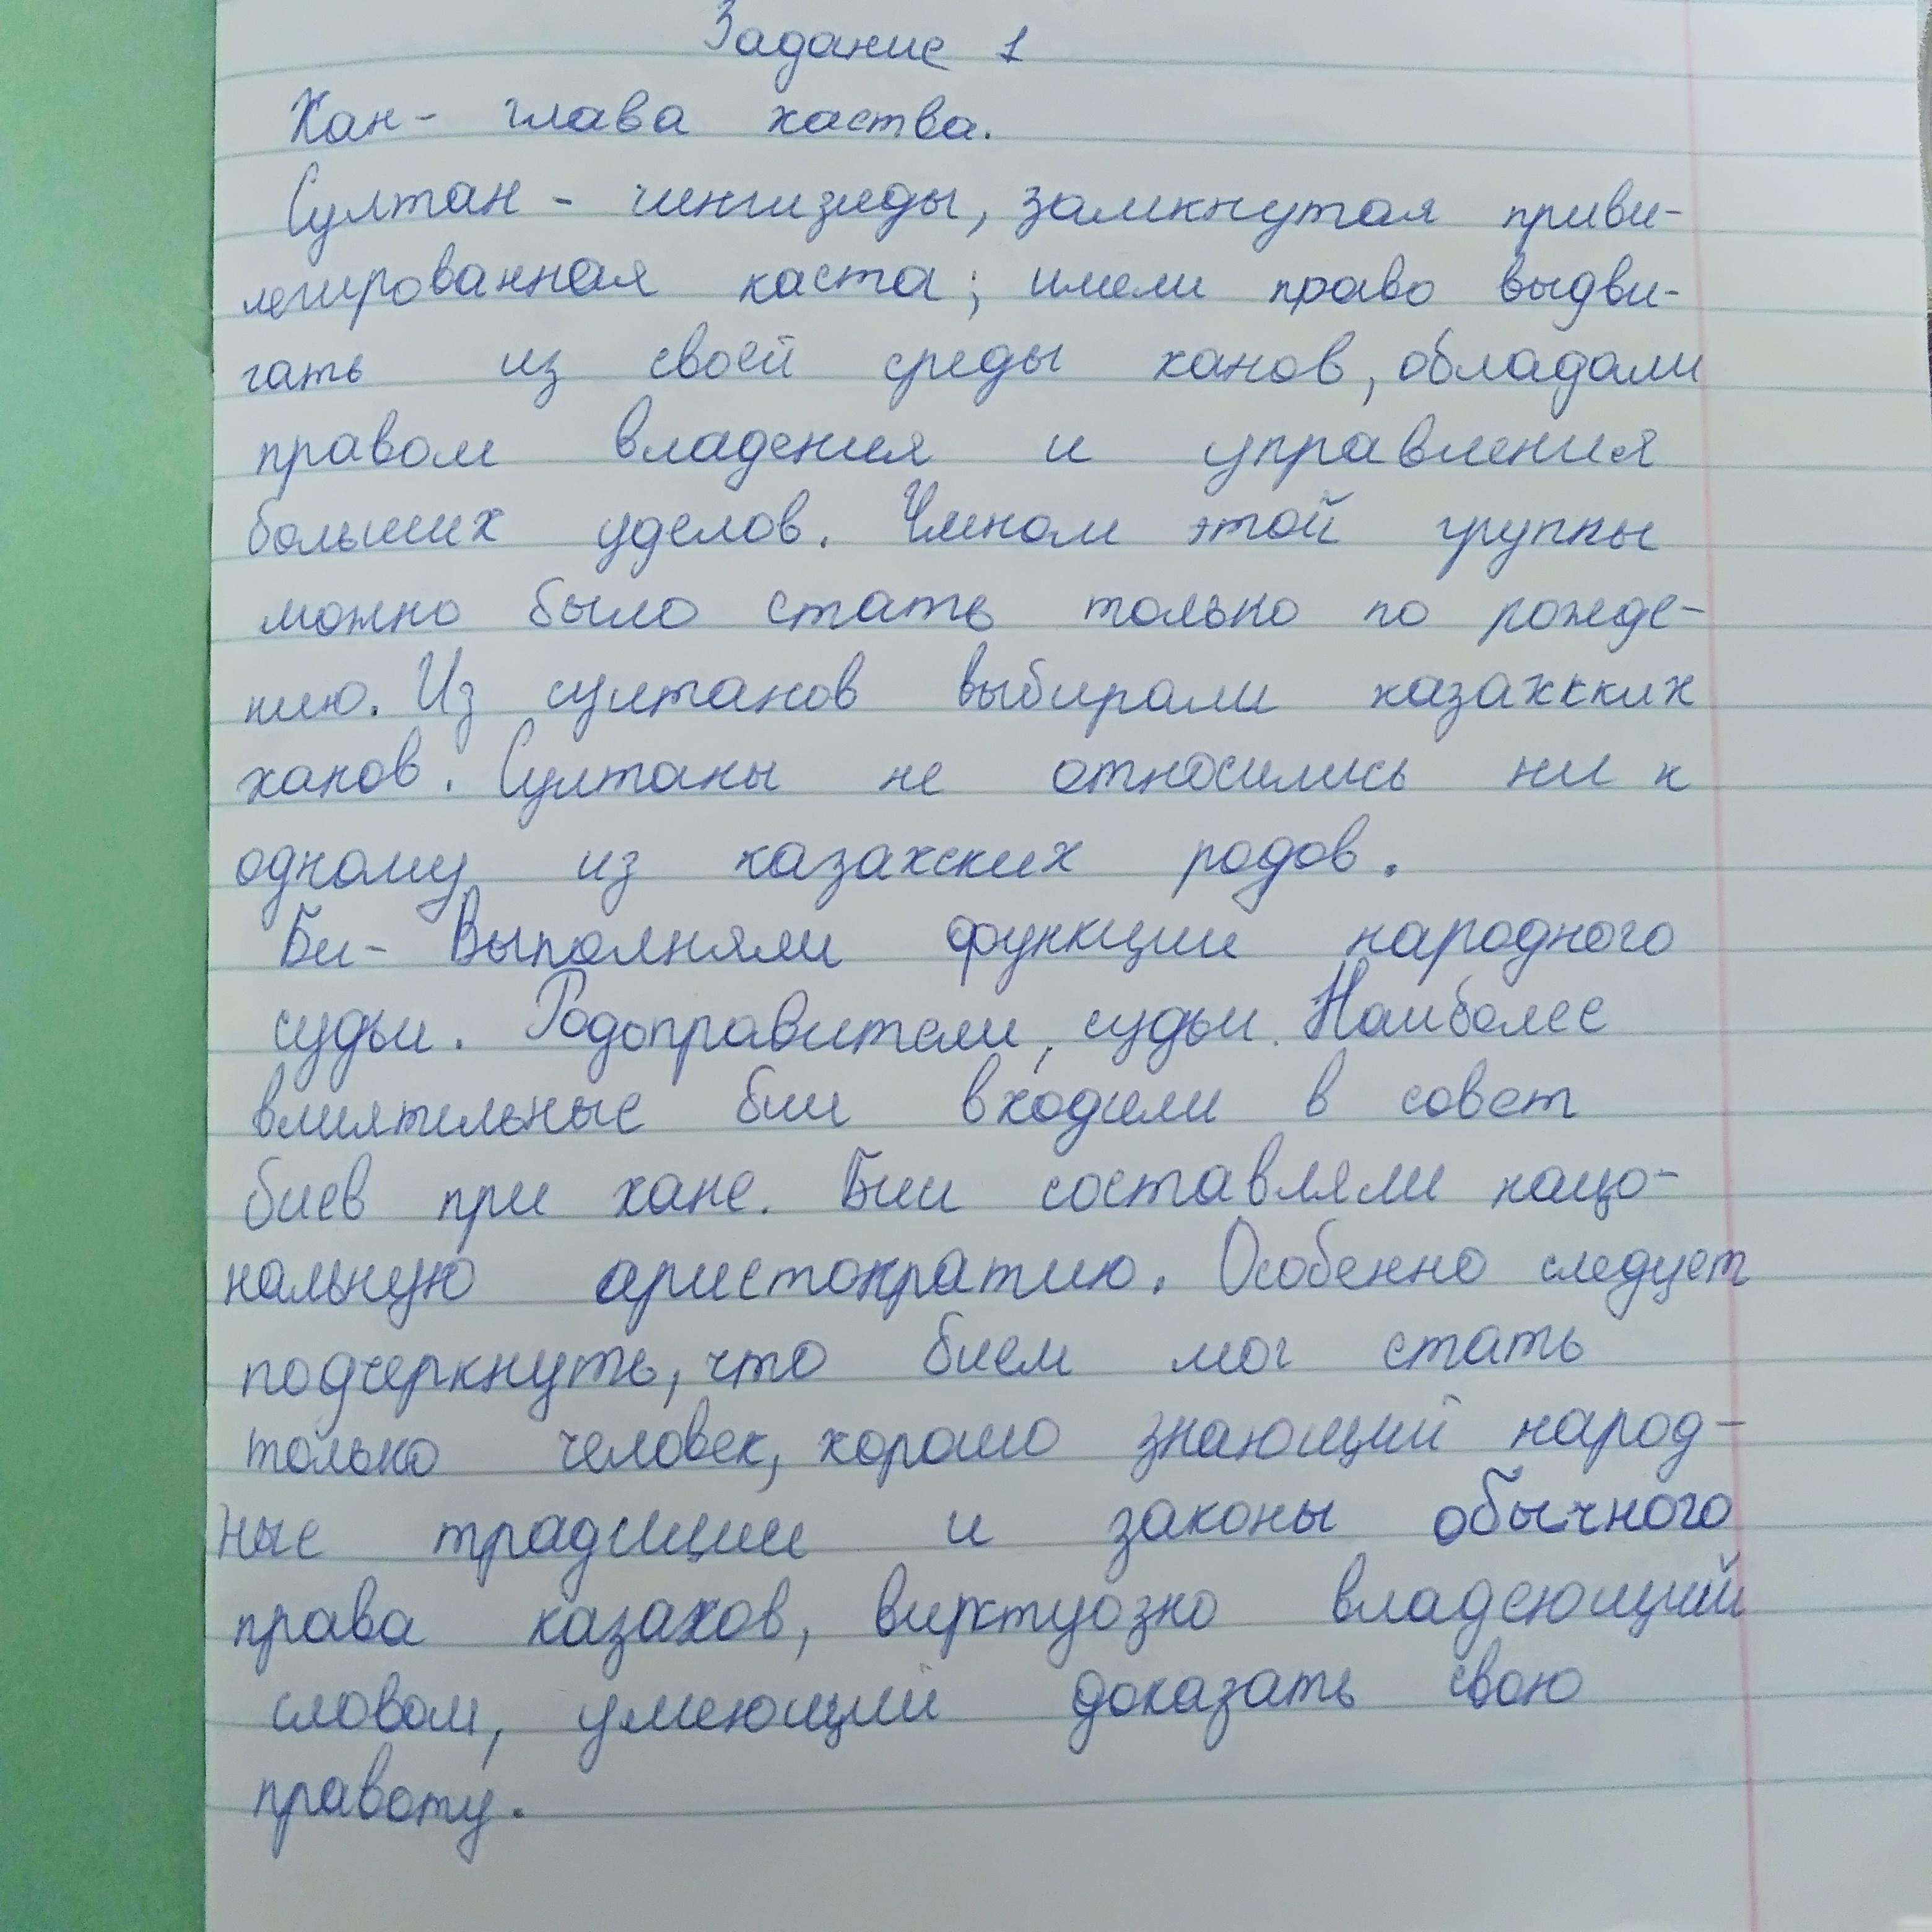 Задание 1
Хан - глава хаства.
Султан - чингизиды, замкнутая приви-
легированная каста; имели право выдви-
гать из своей среды ханов, обладали
правом владения и управления
больших уделов. Членом этой группы
можно было стать только по рожде-
нию. Из султанов выбирали казахких
ханов. Султаны не относились ни к
одному из казахских родов.
Би - Выполняли функции народного
судьи. Родоправители, судьи. Наиболее
влиятильные бии входили в совет
биев при хане. Бии составляли нацо-
нальную аристократию. Особенно следует
подчеркнуть, что бием мог стать
только человек, хорошо знающий народ-
ные традиции и законы обычного
права казахов, вирктуозно владеющий
словом, умеющий доказать свою
правоту.